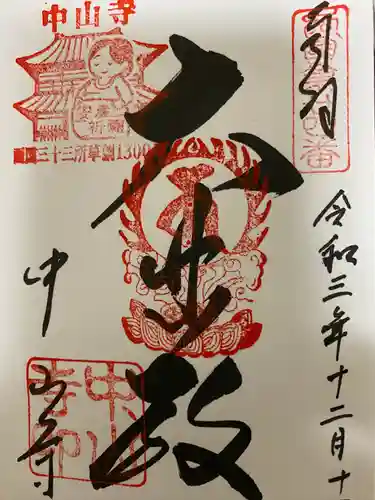 奉拝
令和三年十二月十
大悲殿
中山寺
中山寺
安産
祈願
三十三所草創1300
中山寺印